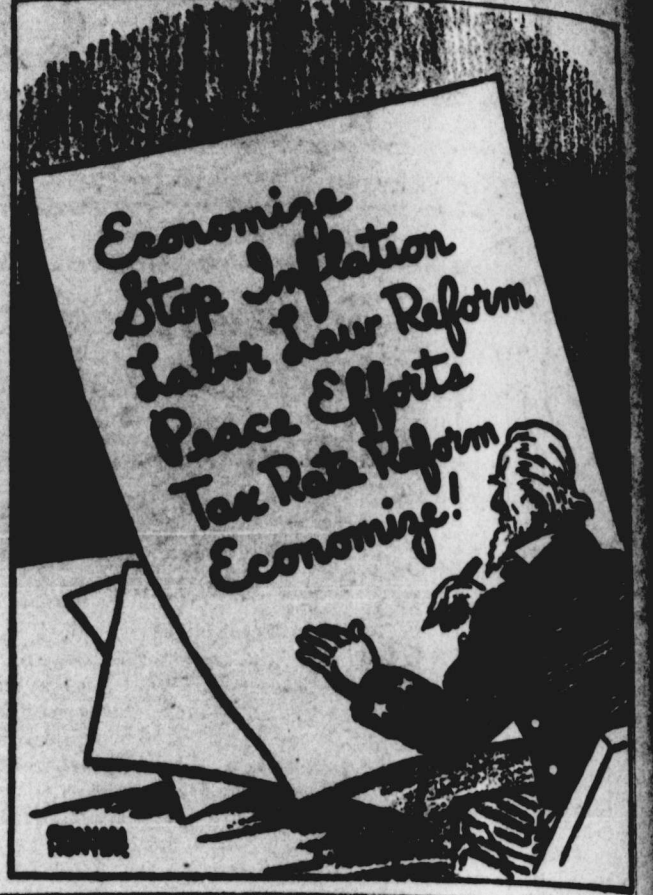 Economize
Stop Inflation
Labor Law Reform
Peace Efforts
Tax Rate Reform
Economize!